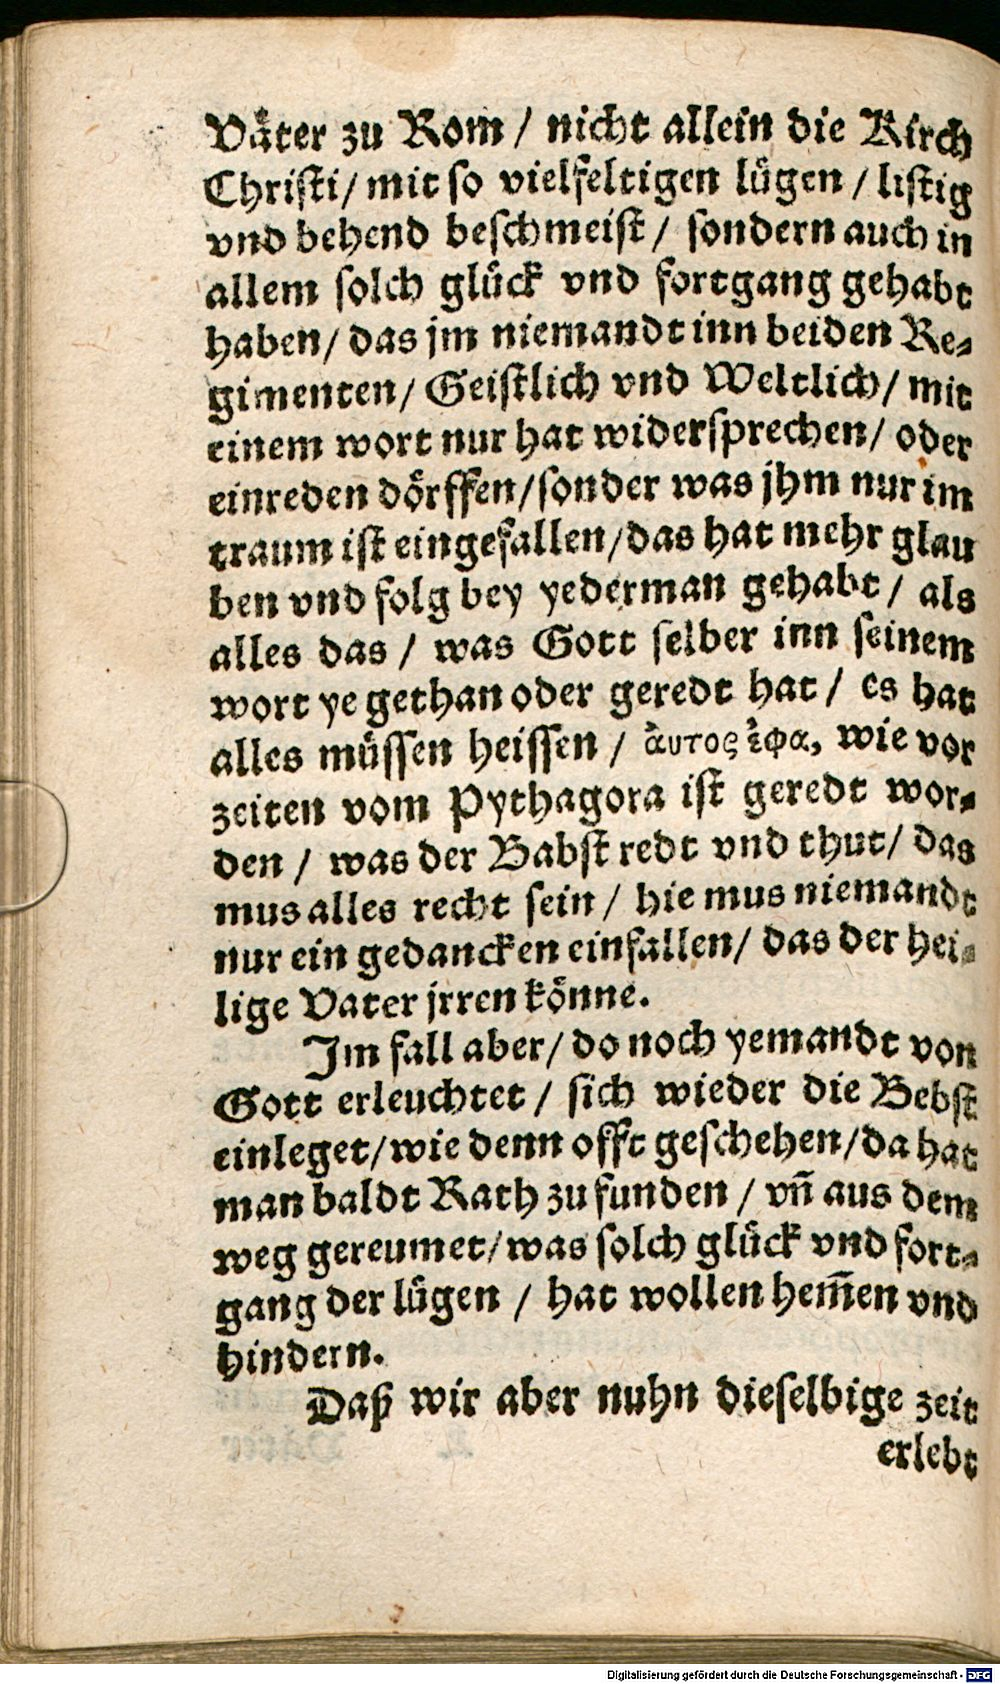 Väter zu Rom / nicht allein die Kirch
Christi / mit so vielfeltigen lügen / listig
vnd behend beschmeist / sondern auch in
allem solch glück vnd fortgang gehabt
haben / das jm niemandt inn beiden Re-
gimenten / Geistlich vnd Weltlich / mit
einem wort nur hat widersprechen / oder
einreden dörffen / sonder was jhm nur im
traum ist eingefallen / das hat mehr glau
ben vnd folg bey yederman gehabt / als
alles das / was Gott selber inn seinem
wort ye gethan oder geredt hat / es hat
alles müssen heissen / ἀυτος ἐφα, wie vor
zeiten vom Pythagora ist geredt wor-
den / was der Babst redt vnd thut / das
mus alles recht sein / hie mus niemandt
nur ein gedancken einfallen / das der hei-
lige Vater jrren könne.
Im fall aber / do noch yemandt von
Gott erleuchtet / sich wieder die Bebst
einleget / wie denn offt geschehen / da hat
man baldt Rath zu funden / vn̄ aus dem
weg gereumet / was solch glück vnd fort-
gang der lügen / hat wollen hem̄en vnd
hindern.
Daß wir aber nuhn dieselbige zeit
erlebt
Digitalisierung gefördert durch die Deutsche Forschungsgemeinschaft - DFG